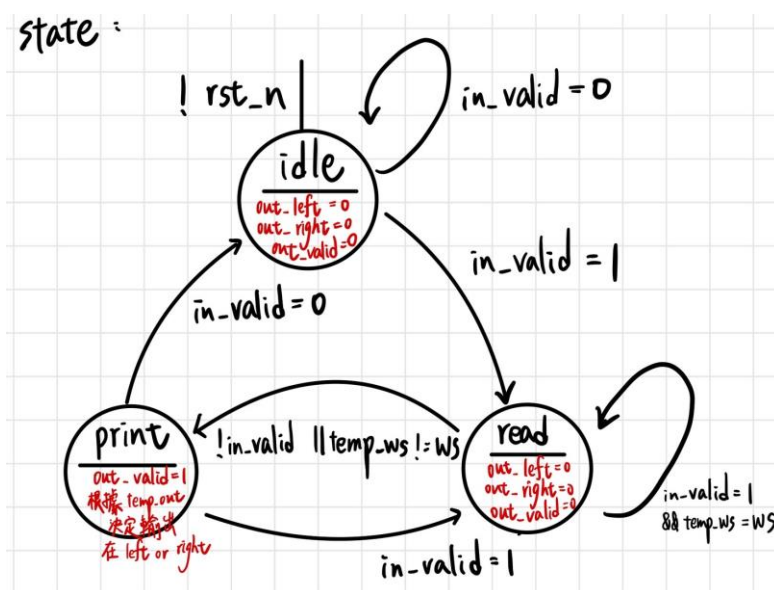 state :
! rst_n
in_valid = 0
idle
out_left = 0
out_right = 0
out_valid = 0
in_valid = 1
in_valid = 0
print
out_valid = 1
根據 temp_out
決定輸出
在 left or right
!in_valid || temp_ws != WS
read
out_left = 0
out_right = 0
out_valid = 0
in_valid = 1
&& temp_ws = WS
in_valid = 1